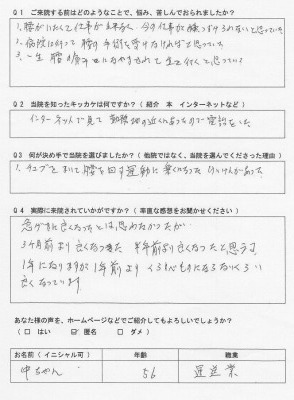 Q1 ご来院する前はどのようなことで、悩み、苦しんでおられましたか？
1. 腰がいたくて仕事が出来ない 今の仕事が続けられないと思っていた
2. 病院に行って腰の手術を受けなければと思っていた
3. 一生 腰の痛みになやまされて生きて行くと思っている
Q2 当院を知ったキッカケは何ですか？（ 紹介 本 インターネットなど ）
インターネットで見て 勤務地の近くにあったので電話をした
Q3 何が決め手で当院を選びましたか？（ 他院ではなく、当院を選んでくださった理由 ）
1. チューブをまいて腰を回す運動に
Q4 実際に来院されていかがですか？（ 率直な感想をお聞かせください ）
急が楽になったとは思わなかったが
3ヶ月前より良くなって来た 半年前より良くなったと思う
1年になりますが1年前よりくらべものにならないくらい
良くなっています
あなた様の声を、ホームページなどでご紹介してもよろしいでしょうか？
（ □ はい ☑ 匿名 □ ダメ ）
お名前（ イニシャル可 ） 年齢 職業
中ちゃん 56 運送業